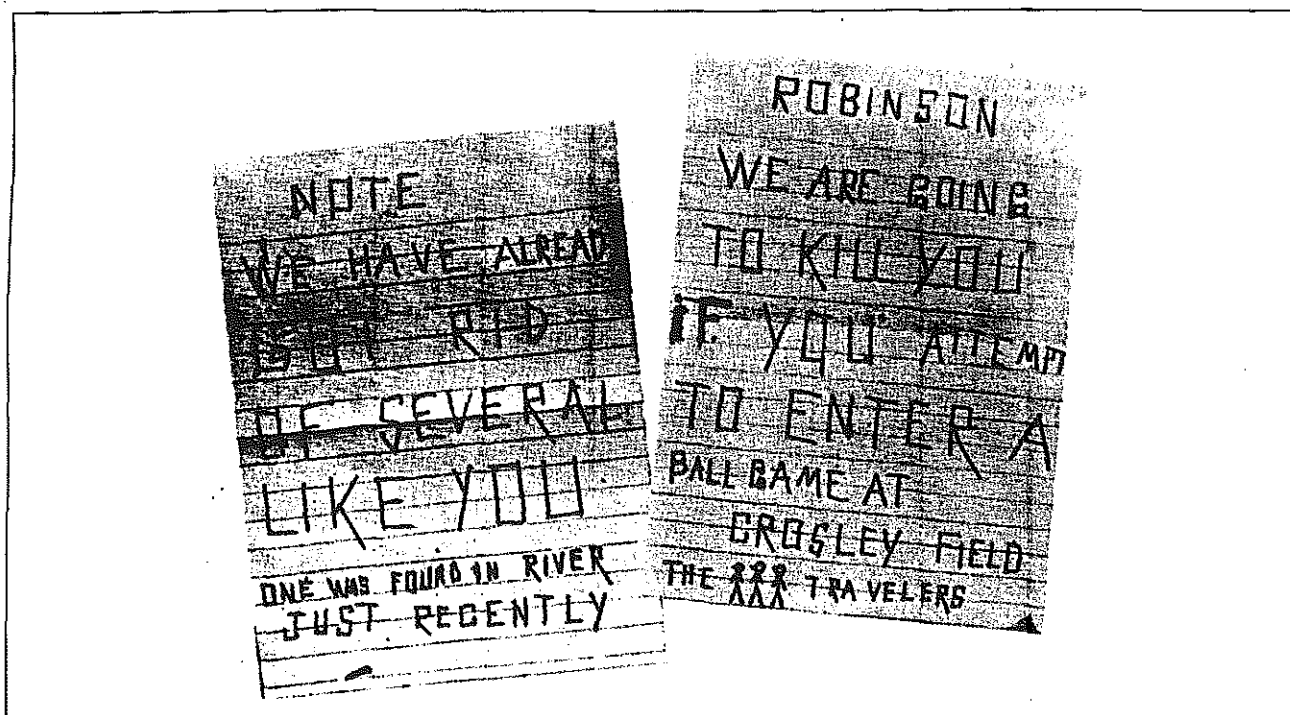 NOTE
WE HAVE ALREAD
GOT RID
OF SEVERAL
LIKE YOU
ONE WAS FOUND IN RIVER
JUST RECENTLY
ROBINSON
WE ARE GOING
TO KILL YOU
IF YOU ATTEMPT
TO ENTER A
BALL GAME AT
CROSLEY FIELD
THE TRAVELERS